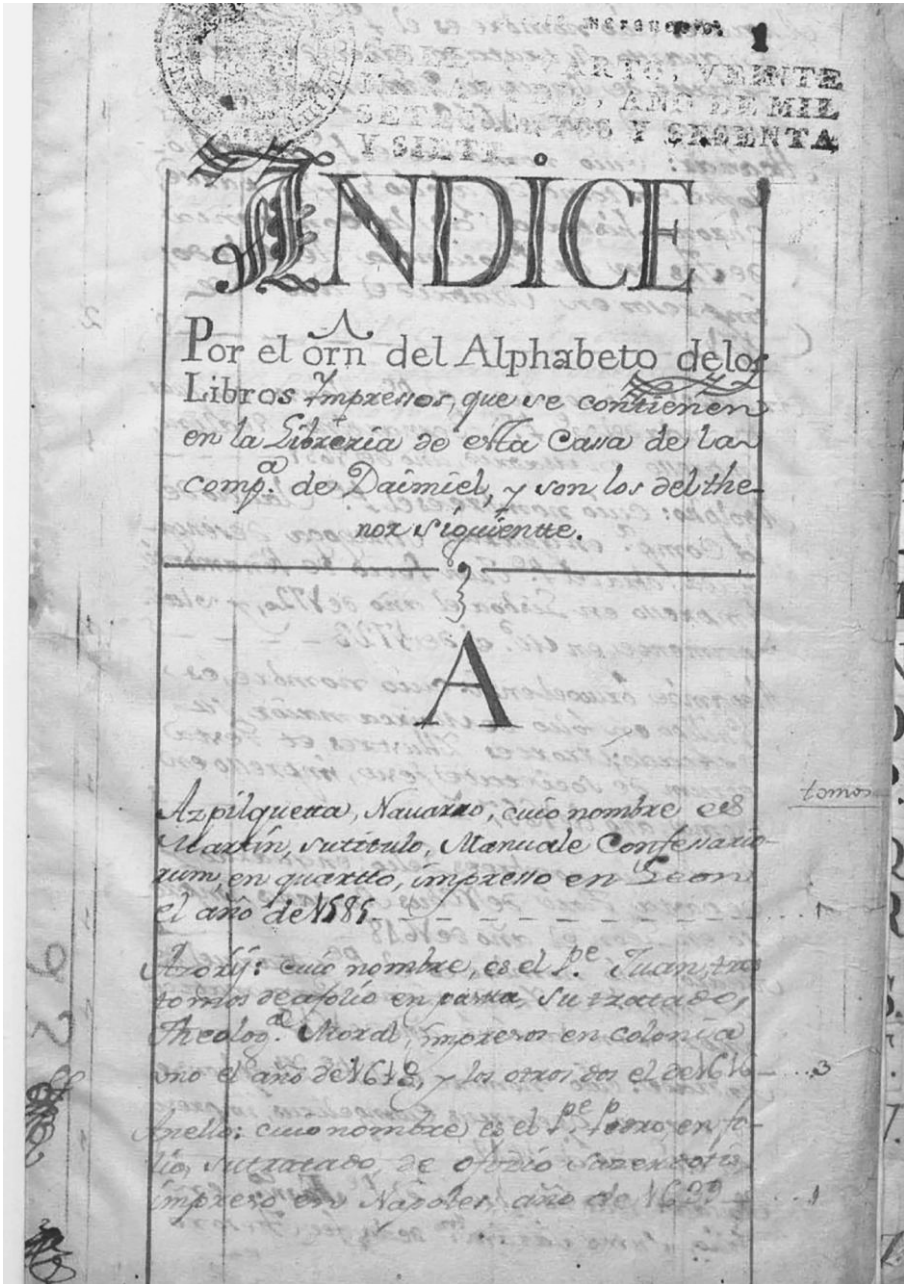 VEINTE
AÑO DE MIL
Y SESENTA
Y SIETE
INDICE
Por el orn̄ del Alphabeto delos
Libros Ympressos, que se contienen
en la Libreria de esta Casa de la
comp.ª de Daimiel, y son los del the-
nor siguientte.
A
tomos
Azpilquetta, Navarro, cuio nombre es
Martin, su titulo, Manuale Confesario-
rum en quartto, impresso en Leon
el año de 1585
Azorij: cuio nombre, es el P.e Juan, tres
tomos de afolio en pasta, su tratado,
Theolog.ª Moral, impresos en colonia
uno el año de 1612, y los otros dos el de 1616 ...3
Anello: cuio nombre es el P.e Pedro, en fo-
lio, su tratado, de ofizio sazerdotis,
impreso en Napoles, año de ...1
2